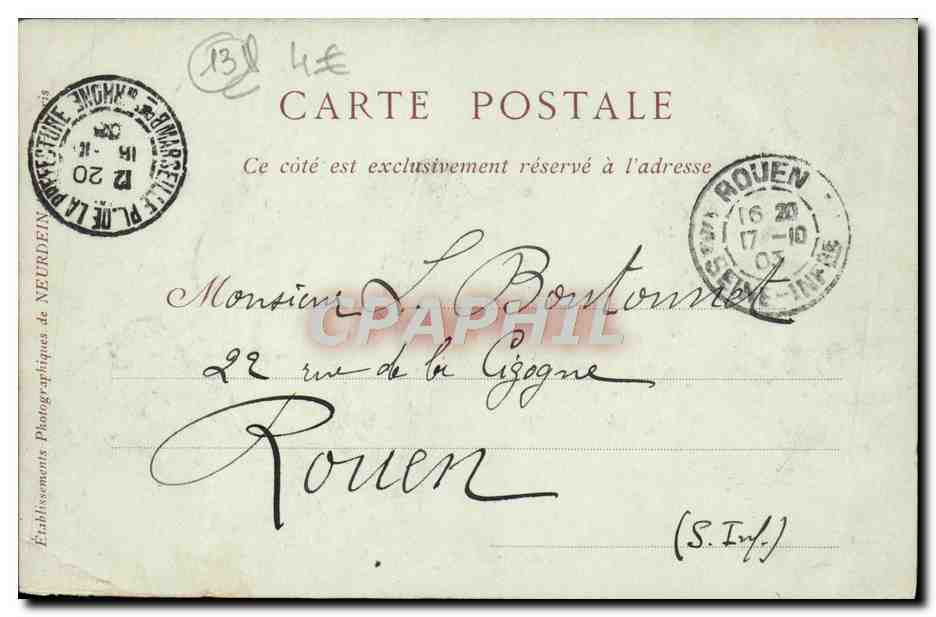 13 4€
CARTE POSTALE
Ce côté est exclusivement réservé à l'adresse
MARSEILLE PL. DE LA PREFECTURE
12 20
15
ROUEN
16 20
17 - 10
03
SEINE-INFRE
Monsieur L. Boutonnet
CPAPHIL
22 rue de la Cigogne
Rouen
(S. Inf.)
Établissements Photographiques de NEURDEIN